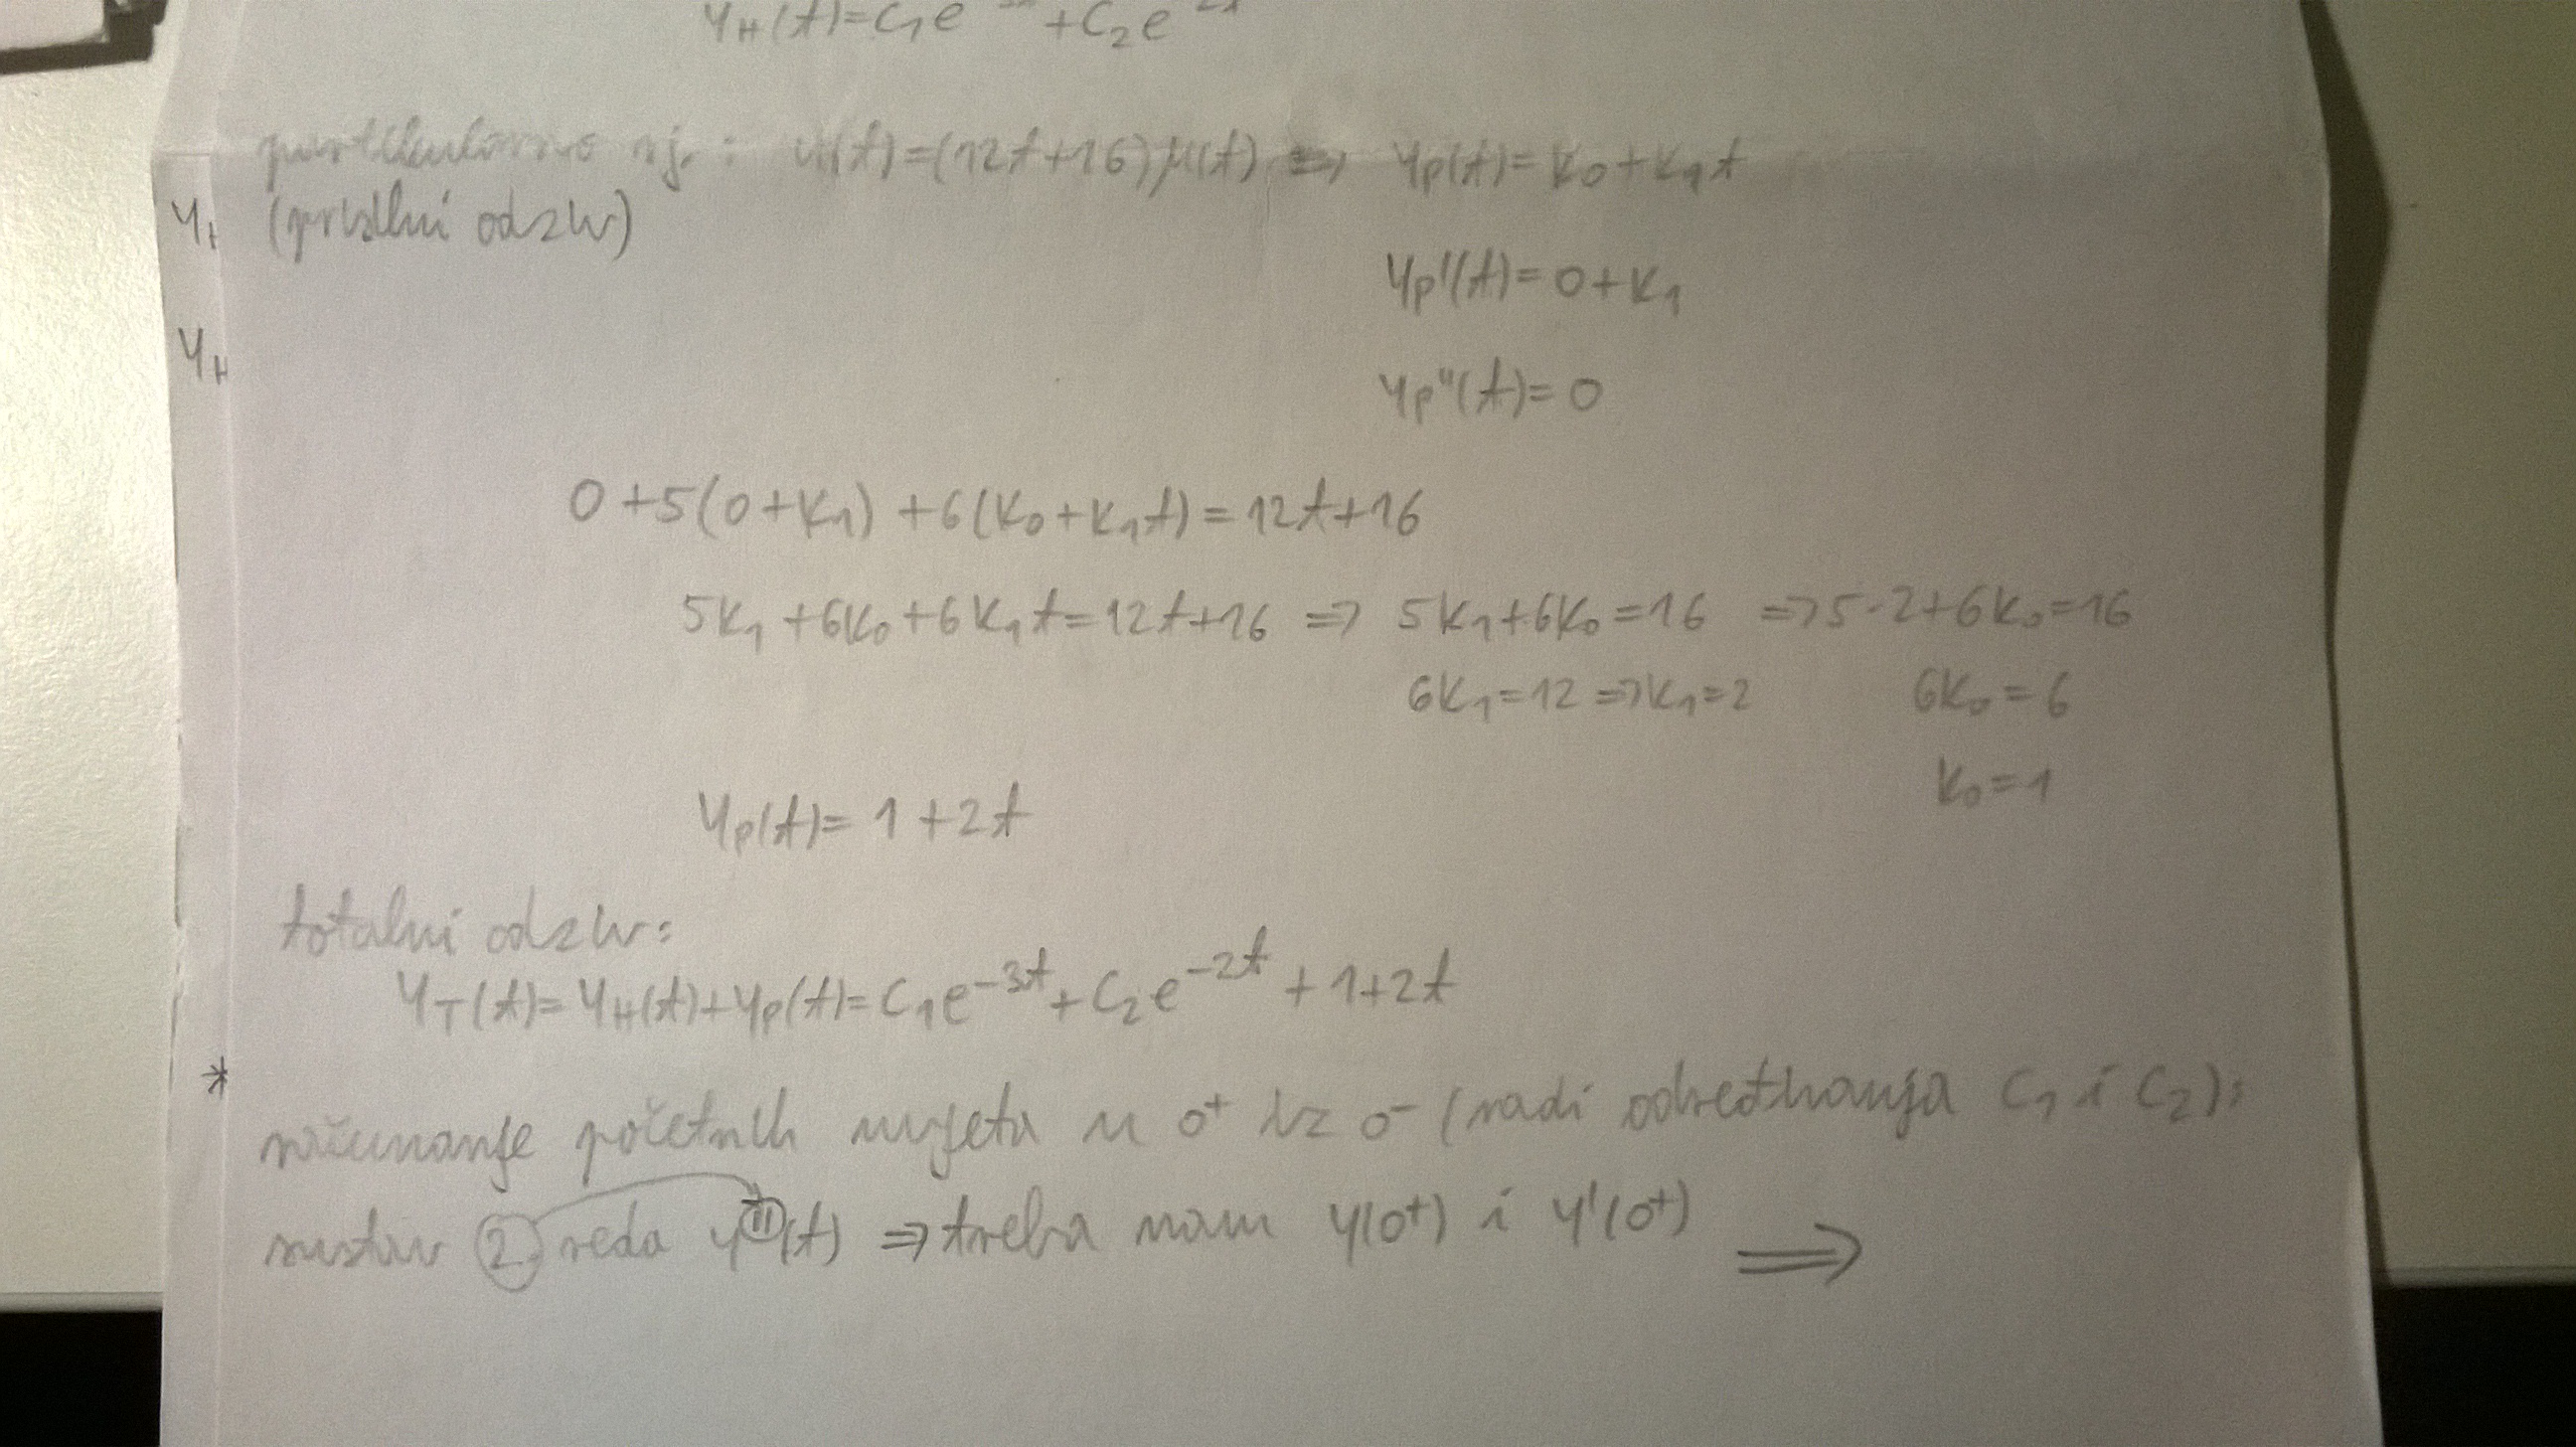 y_H(t)=C₁e + C₂e
partikularno rj. : u(t)=(12t+16)μ(t) ⇒ y_P(t)=K₀+K₁t
y_H (prisilni odziv)
y_P'(t)=0+K₁
y_H
y_P''(t)=0
0+5(0+K₁)+6(K₀+K₁t)=12t+16
5K₁+6K₀+6K₁t=12t+16 ⇒ 5K₁+6K₀=16 ⇒ 5·2+6K₀=16
6K₁=12 ⇒ K₁=2 6K₀=6
K₀=1
y_P(t)=1+2t
totalni odziv:
y_T(t)=y_H(t)+y_P(t)=C₁e^{-3t}+C₂e^{-2t}+1+2t
*
računanje početnih uvjeta u 0⁺ iz 0⁻ (radi određivanja C₁ i C₂):
sustav 2. reda y''(t) ⇒ treba nam y(0⁺) i y'(0⁺) ⇒